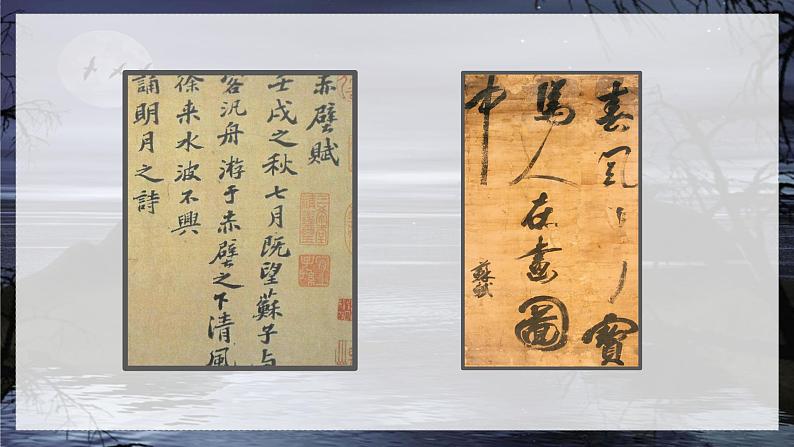 赤壁賦
壬戌之秋七月既望蘇子与
客汎舟游于赤壁之下清風
徐来水波不興
誦明月之詩
春風寶
馬人在畫圖
中
蘇軾